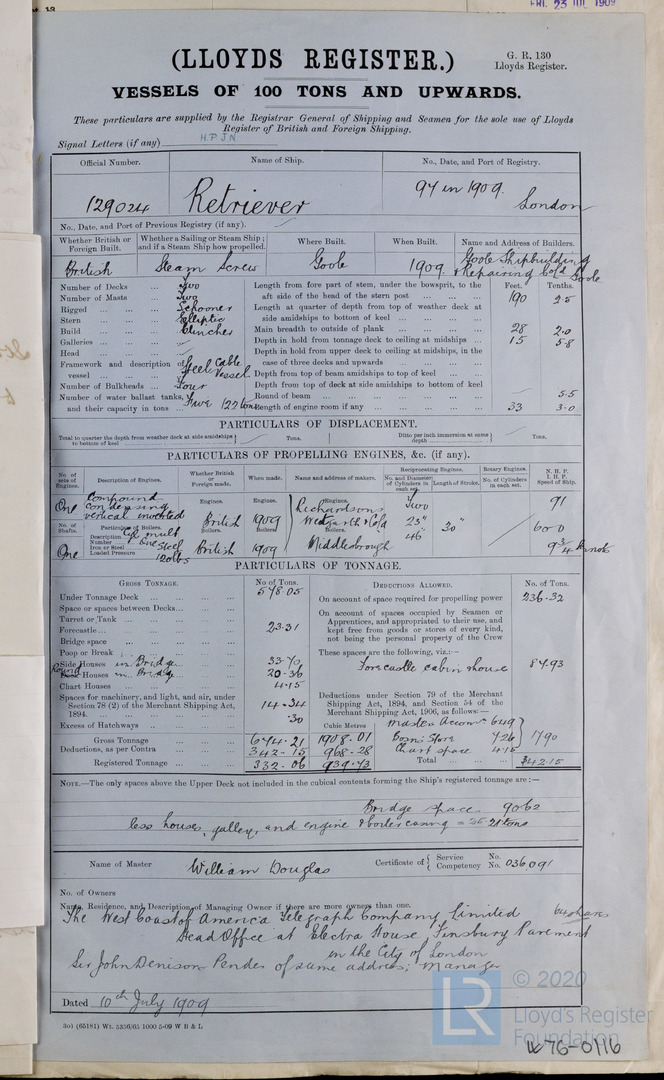 FRI. 23 JUL 1909
(LLOYDS REGISTER.)
G. R. 130
Lloyds Register.
VESSELS OF 100 TONS AND UPWARDS.
These particulars are supplied by the Registrar General of Shipping and Seamen for the sole use of Lloyds
Register of British and Foreign Shipping.
Signal Letters (if any) H.P.J.N.
Official Number. Name of Ship. No., Date, and Port of Registry.
129024 Retriever 97 in 1909. London
No., Date, and Port of Previous Registry (if any).
Whether British or Foreign Built. Whether a Sailing or Steam Ship; and if a Steam Ship how propelled. Where Built. When Built. Name and Address of Builders.
British Steam Screw Goole 1909. Goole Shipbuilding & Repairing Co Ld Goole
Number of Decks ... Two
Number of Masts ... Two
Rigged ... Schooner
Stern ... Elliptic
Build ... Clincher
Galleries ...
Head ...
Framework and description of vessel ... Steel Cable Vessel
Number of Bulkheads ... Four
Number of water ballast tanks, and their capacity in tons ... Five 122 tons
Feet. Tenths.
Length from fore part of stem, under the bowsprit, to the aft side of the head of the stern post ... 190 2.5
Length at quarter of depth from top of weather deck at side amidships to bottom of keel ...
Main breadth to outside of plank ... 28 2.0
Depth in hold from tonnage deck to ceiling at midships ... 15 5.8
Depth in hold from upper deck to ceiling at midships, in the case of three decks and upwards ...
Depth from top of beam amidships to top of keel ...
Depth from top of deck at side amidships to bottom of keel
Round of beam ... 5.5
Length of engine room if any ... 33 3.0
PARTICULARS OF DISPLACEMENT.
Total to quarter the depth from weather deck at side amidships to bottom of keel Tons. Ditto per inch immersion at same depth Tons.
PARTICULARS OF PROPELLING ENGINES, &c. (if any).
No. of sets of Engines. Description of Engines. Whether British or Foreign made. When made. Name and address of makers. Reciprocating Engines. Rotary Engines. N. H. P. I. H. P. Speed of Ship.
No. and Diameter of Cylinders in each set. Length of Stroke. No. of Cylinders in each set.
One Compound condensing vertical inverted Engines. British Engines. 1909 Engines. Richardsons Westgarth & Co Ld Middlesbrough Two 23" 46" 30" 91 600 9 3/4 knots
No. of Shafts. Particulars of Boilers.
Description Cyl mult
Number One
Iron or Steel Steel
Loaded Pressure 120 lbs
One Boilers. British Boilers. 1909 Boilers.
PARTICULARS OF TONNAGE.
GROSS TONNAGE. No. of Tons.
Under Tonnage Deck ... 578.05
Space or spaces between Decks ...
Turret or Tank ...
Forecastle ... 23.31
Bridge space ...
Poop or Break ...
Side Houses in Bridge 33.70
Round Houses in Bridge 20.36
Chart Houses ... 4.15
Spaces for machinery, and light, and air, under Section 78 (2) of the Merchant Shipping Act, 1894. ... 14.34
Excess of Hatchways ... .30
Cubic Metres
Gross Tonnage 674.21 1908.01
Deductions, as per Contra 342.15 968.28
Registered Tonnage ... 332.06 939.73
DEDUCTIONS ALLOWED. No. of Tons.
On account of space required for propelling power 236.32
On account of spaces occupied by Seamen or Apprentices, and appropriated to their use, and kept free from goods or stores of every kind, not being the personal property of the Crew
These spaces are the following, viz.:—
Forecastle cabin & house 87.93
Deductions under Section 79 of the Merchant Shipping Act, 1894, and Section 54 of the Merchant Shipping Act, 1906, as follows:—
Master Accomn 6.49
Bosn: Store 7.26
Chart space 4.15
17.90
Total ... 342.15
NOTE.—The only spaces above the Upper Deck not included in the cubical contents forming the Ship's registered tonnage are:—
Bridge space 90.62
less houses, galley, and engine & boiler casing = tons
Name of Master William Douglas Certificate of { Service No. Competency No. 036,091
No. of Owners
Name, Residence, and Description of Managing Owner if there are more owners than one.
The West Coast of America Telegraph Company Limited 64 shares
Head Office at Electra House Finsbury Pavement
in the City of London
Sir John Denison Pender of same address; manager
Dated 10th July 1909
3o) (65181) Wt. 5356/65 1000 5-09 W B & L
LR
© 2020
Lloyd's Register
Foundation
76-0116